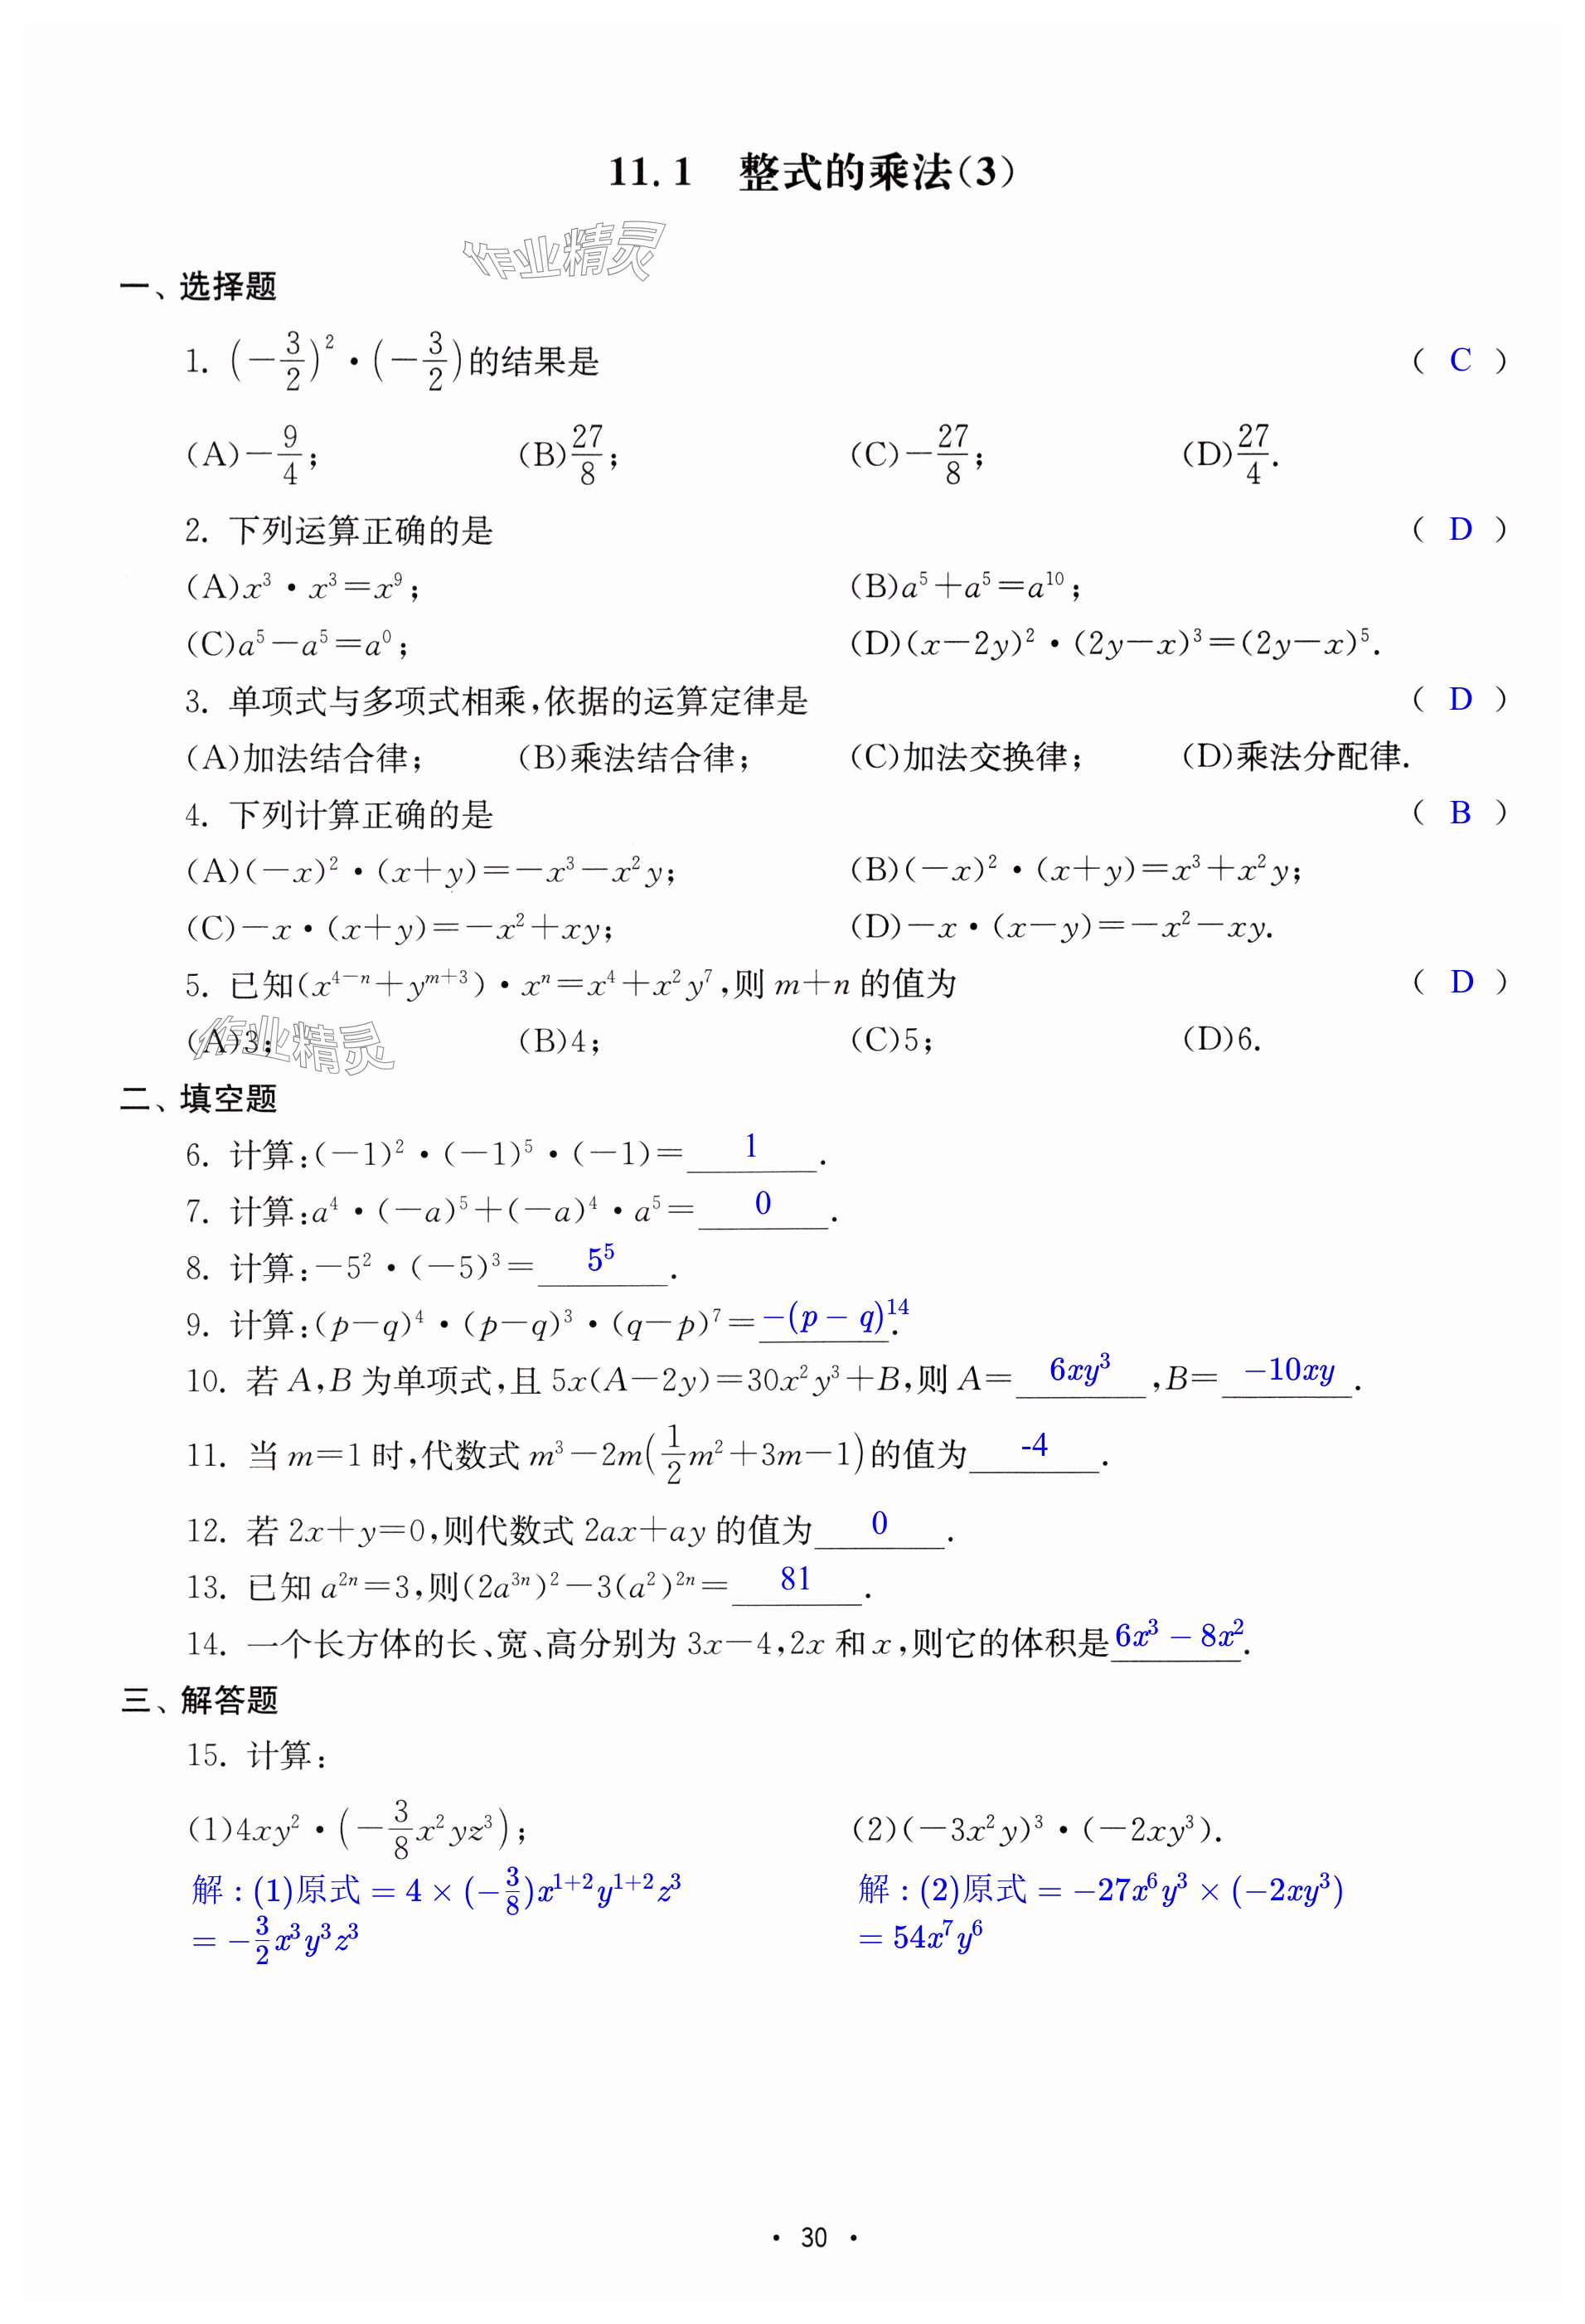 11.1 整式的乘法(3)
作业精灵
一、选择题
1. (−3/2)²·(−3/2)的结果是 ( C )
(A)−9/4; (B)27/8; (C)−27/8; (D)27/4.
2. 下列运算正确的是 ( D )
(A)x³·x³=x⁹; (B)a⁵+a⁵=a¹⁰;
(C)a⁵−a⁵=a⁰; (D)(x−2y)²·(2y−x)³=(2y−x)⁵.
3. 单项式与多项式相乘,依据的运算定律是 ( D )
(A)加法结合律; (B)乘法结合律; (C)加法交换律; (D)乘法分配律.
4. 下列计算正确的是 ( B )
(A)(−x)²·(x+y)=−x³−x²y; (B)(−x)²·(x+y)=x³+x²y;
(C)−x·(x+y)=−x²+xy; (D)−x·(x−y)=−x²−xy.
5. 已知(x⁴⁻ⁿ+yᵐ⁺³)·xⁿ=x⁴+x²y⁷,则 m+n 的值为 ( D )
(A)3; (B)4; (C)5; (D)6.
作业精灵
二、填空题
6. 计算:(−1)²·(−1)⁵·(−1)= 1 .
7. 计算:a⁴·(−a)⁵+(−a)⁴·a⁵= 0 .
8. 计算:−5²·(−5)³= 5⁵ .
9. 计算:(p−q)⁴·(p−q)³·(q−p)⁷= −(p − q)¹⁴ .
10. 若 A,B 为单项式,且 5x(A−2y)=30x²y³+B,则 A= 6xy³ ,B= −10xy .
11. 当 m=1 时,代数式 m³−2m(1/2m²+3m−1)的值为 -4 .
12. 若 2x+y=0,则代数式 2ax+ay 的值为 0 .
13. 已知 a²ⁿ=3,则(2a³ⁿ)²−3(a²)²ⁿ= 81 .
14. 一个长方体的长、宽、高分别为 3x−4,2x 和 x,则它的体积是 6x³ − 8x² .
三、解答题
15. 计算:
(1)4xy²·(−3/8x²yz³); (2)(−3x²y)³·(−2xy³).
解:(1)原式 = 4 × (−3/8)x¹⁺²y¹⁺²z³ 解:(2)原式 = −27x⁶y³ × (−2xy³)
= −3/2x³y³z³ = 54x⁷y⁶
· 30 ·